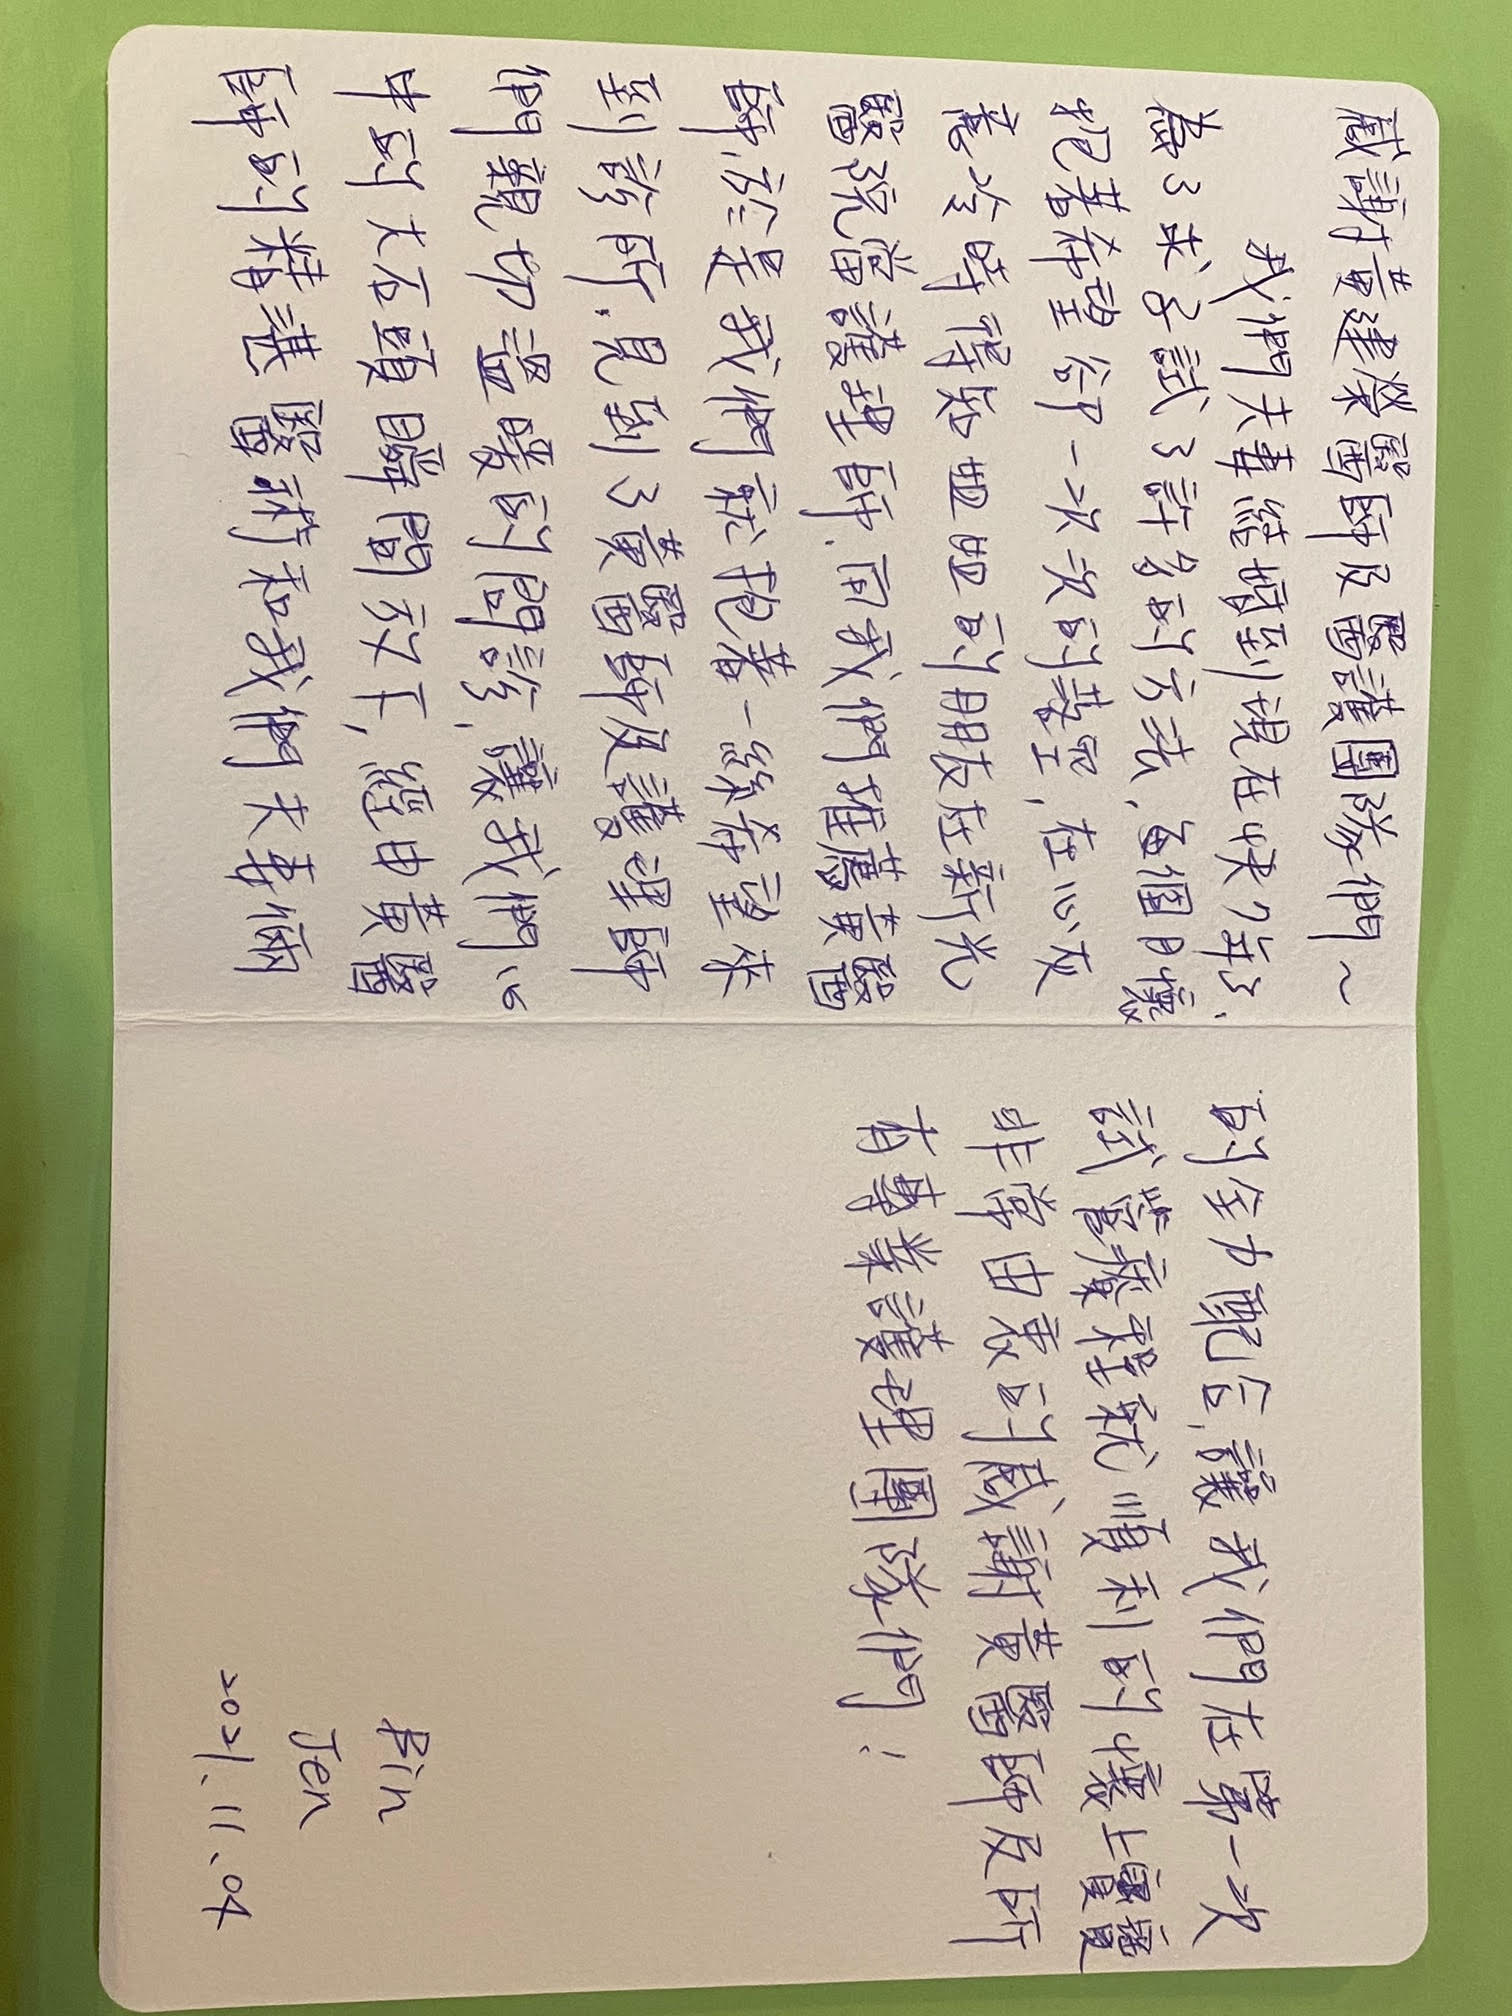 感謝黃建榮醫師及醫護團隊們～
我們夫妻結婚到現在快7年了、
為了求子試了許多的方法,每個月懷
抱著希望卻一次次的落空,在心灰
意冷時得知姐姐的朋友在新光
醫院當護理師,向我們推薦黃醫
師,於是我們就抱著一絲希望來
到診所,見到了黃醫師及護理師
們親切溫暖的問診,讓我們心
中的大石頭瞬間放下,經由黃醫
師的精湛醫術和我們夫妻倆
的全力配合,讓我們在第一次
試管療程就順利的懷上寶寶
非常由衷的感謝黃醫師及所
有專業護理團隊們!
Bin
Jen
2021.11.04